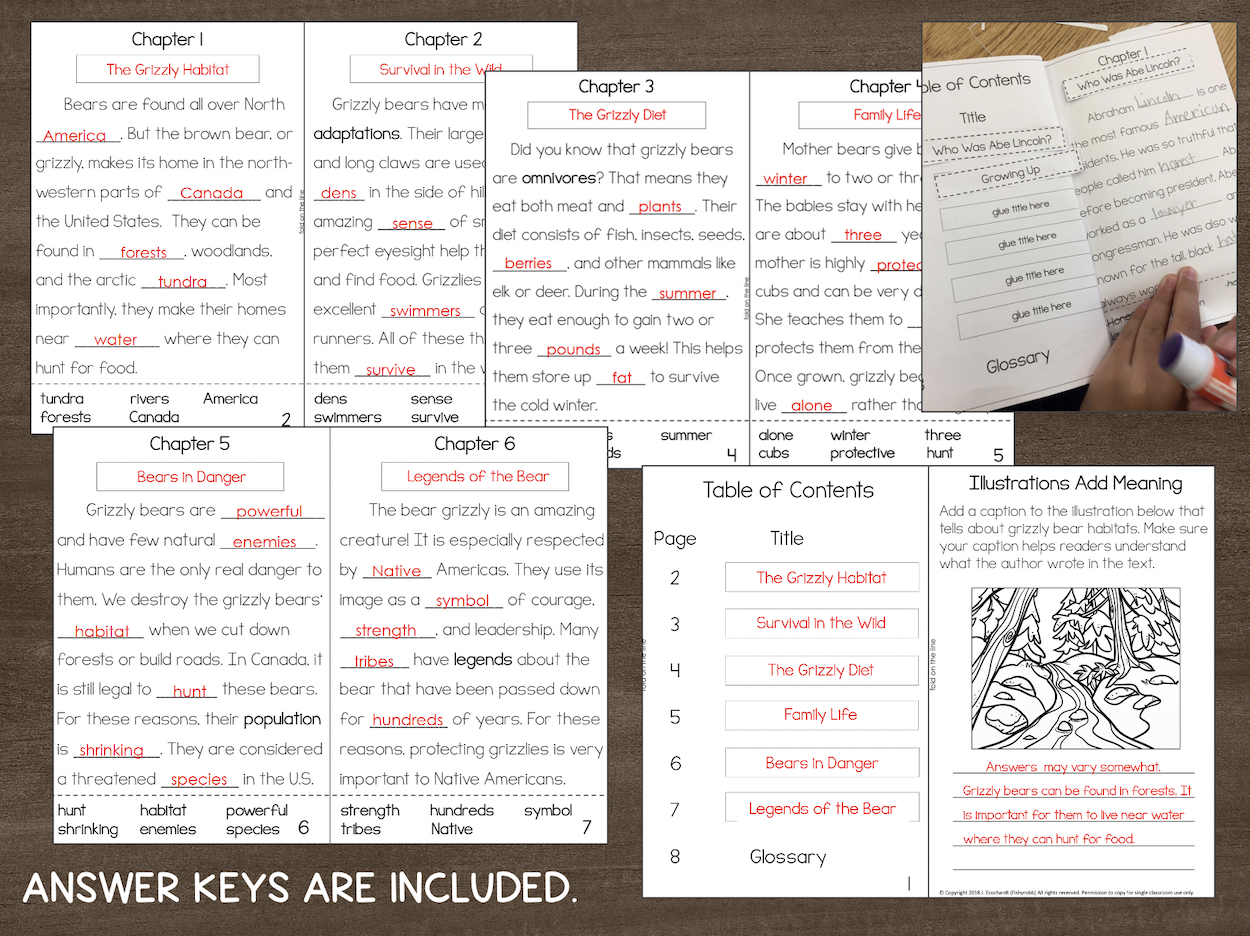 Chapter 1
The Grizzly Habitat
Bears are found all over North
America. But the brown bear, or
grizzly, makes its home in the north-
western parts of Canada and
the United States. They can be
found in forests, woodlands,
and the arctic tundra. Most
importantly, they make their homes
near water where they can
hunt for food.
tundra rivers America
forests Canada
2
fold on the line
Chapter 2
Survival in the Wild
Grizzly bears have m
adaptations. Their large
and long claws are used
dens in the side of hil
amazing sense of sr
perfect eyesight help th
and find food. Grizzlies
excellent swimmers
runners. All of these th
them survive in the w
dens sense
swimmers survive
Chapter 3
The Grizzly Diet
Did you know that grizzly bears
are omnivores? That means they
eat both meat and plants. Their
diet consists of fish, insects, seeds,
berries, and other mammals like
elk or deer. During the summer,
they eat enough to gain two or
three pounds a week! This helps
them store up fat to survive
the cold winter.
s summer
ds
4
fold on the line
Chapter
Family Life
Mother bears give b
winter to two or thr
The babies stay with he
are about three ye
mother is highly protec
cubs and can be very d
She teaches them to
protects them from the
Once grown, grizzly bea
live alone rather tha
alone winter three
cubs protective hunt
5
ble of Contents
Title
Who Was Abe Lincoln?
Growing Up
glue title here
glue title here
glue title here
glue title here
Glossary
Chapter 1
Who Was Abe Lincoln?
Abraham Lincoln is one
the most famous American
idents. He was so truthful that
eople called him honest Ab
efore becoming president, Abe
orked as a lawyer
ongressman. He was also w
nown for the tall, black
always wor
Chapter 5
Bears in Danger
Grizzly bears are powerful
and have few natural enemies.
Humans are the only real danger to
them. We destroy the grizzly bears'
habitat when we cut down
forests or build roads. In Canada, it
is still legal to hunt these bears.
For these reasons, their population
is shrinking. They are considered
a threatened species in the U.S.
hunt habitat powerful
shrinking enemies species
6
Chapter 6
Legends of the Bear
The bear grizzly is an amazing
creature! It is especially respected
by Native Americas. They use its
image as a symbol of courage,
strength, and leadership. Many
tribes have legends about the
bear that have been passed down
for hundreds of years. For these
reasons, protecting grizzlies is very
important to Native Americans.
strength hundreds symbol
tribes Native
7
Table of Contents
Page Title
2 The Grizzly Habitat
3 Survival in the Wild
4 The Grizzly Diet
5 Family Life
6 Bears in Danger
7 Legends of the Bear
8 Glossary
1
fold on the line
fold on the line
Illustrations Add Meaning
Add a caption to the illustration below that
tells about grizzly bear habitats. Make sure
your caption helps readers understand
what the author wrote in the text.
Answers may vary somewhat.
Grizzly bears can be found in forests. It
is important for them to live near water
where they can hunt for food.
© Copyright 2018 J. Ecochardt (Fishyrobb) All rights reserved. Permission to copy for single classroom use only.
ANSWER KEYS ARE INCLUDED.